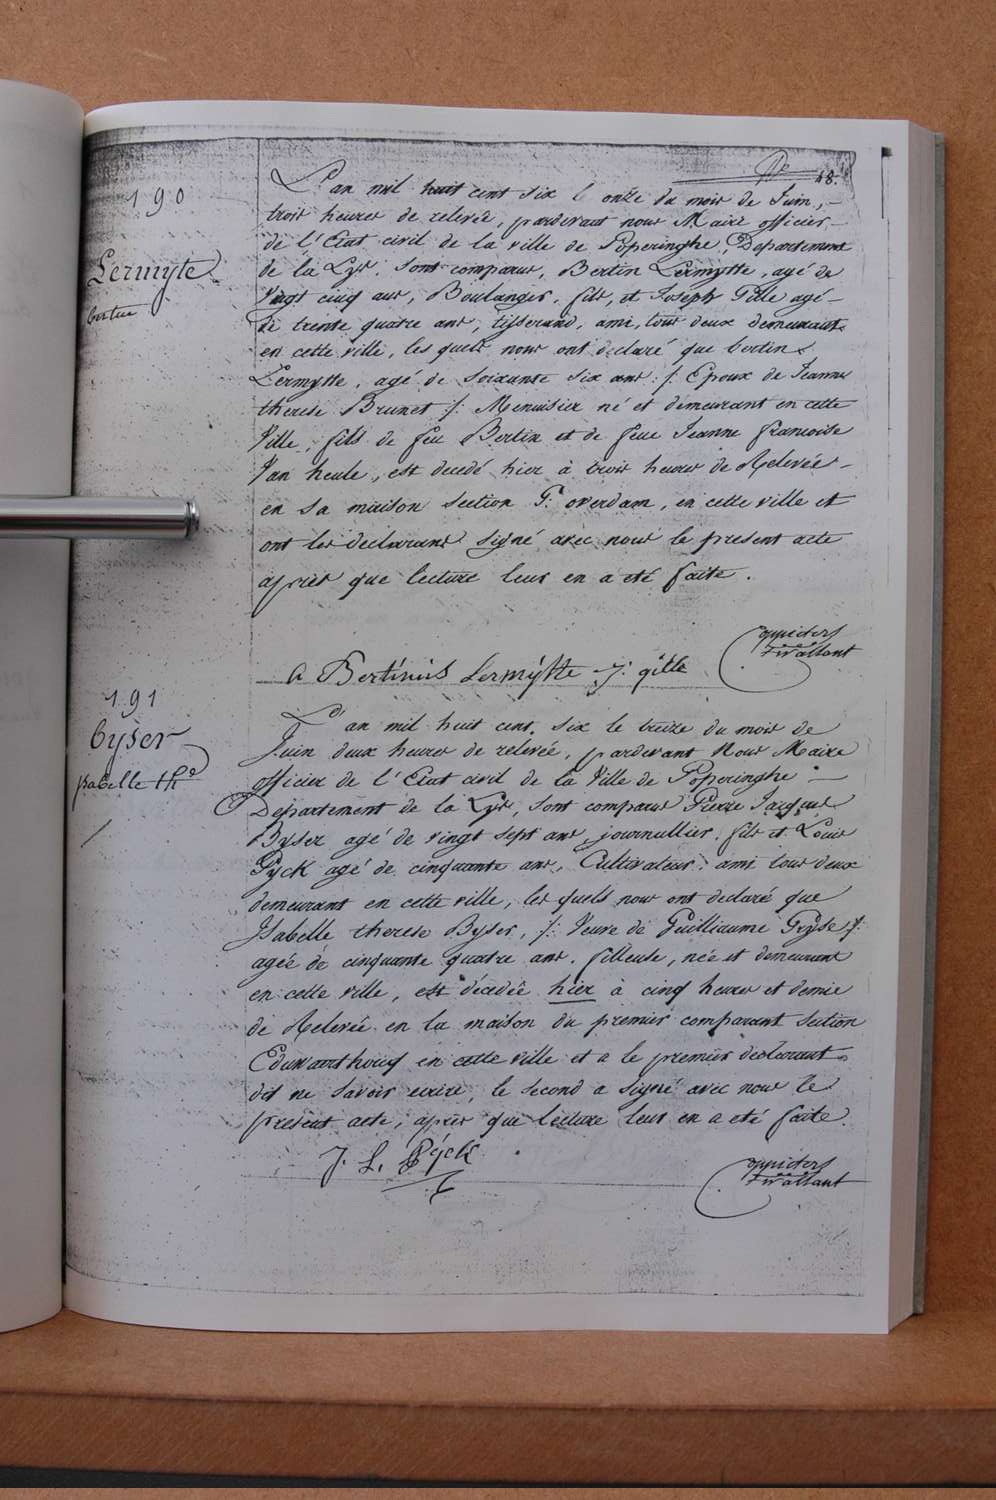 48.
190
Lermyte
bertin
L'an mil huit cent six le onze du mois de Juin,
trois heures de relevée, pardevant nous Maire officier
de l'Etat civil de la ville de Poperinghe, Departement
de la Lys, sont comparus, Bertin Lermytte, agé de
Vingt cinq ans, Boulanger, fils, et Joseph Gille agé
de trente quatre ans, tisserand, ami, tous deux demeurants
en cette ville, les quels nous ont declaré que bertin
Lermytte, agé de soixante six ans /: Epoux de Jeanne
therese Brunet /: Menuisier né et demeurant en cette
Ville, fils de feu Bertin et de feue Jeanne francoise
Van heule, est decedé hier à trois heures de Relevée
en sa maison section F. overdam, en cette ville et
ont les declarans signé avec nous le present acte
après que lecture leur en a eté faite.
a Bertinus Lermÿtte J: gille
191
Byser
isabelle the
L'an mil huit cent six le treize du mois de
Juin deux heures de relevée, pardevant Nous Maire
officier de l'Etat civil de la Ville de Poperinghe
Departement de la Lys, sont comparus Pierre Jacques
Byser agé de vingt sept ans, journallier, fils et Louis
Pyck agé de cinquante ans, Cultivateur, ami tous deux
demeurant en cette ville, les quels nous ont declaré que
Isabelle therese Byser, /: Veuve de Guilliaume Gryse /:
agée de cinquante quatre ans, filleuse, née et demeurant
en cette ville, est décedée hier a cinq heures et demie
de Relevée en la maison du premier comparant section
Edewaerthoucq en cette ville et a le premier declarant
dit ne savoir ecrire, le second a signé avec nous le
present acte, après que lecture leur en a eté faite.
J. L. Pÿck